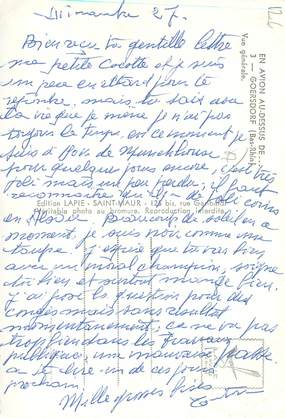 Dimanche 27.
Bien reçu ta gentille lettre
ma petite Cocotte et je suis
un peu en retard pour te
répondre, mais tu sais avec
la vie que je mène je n'ai pas
toujours le temps, en ce moment je
suis à 4 km de
pour quelques jours encore, c'est très
joli mais un peu perdu; il faut
reconnaître qu'il y a de jolis coins
en Alsace. Beaucoup de soleil en ce
moment, je suis noir comme une
taupe. J'espère que tu vas bien
avec un moral champion, soigne
toi bien et surtout mange bien.
J'ai posé la question pour des
congés mais sans résultat
momentanément; ça ne va pas
trop bien dans les travaux
publics, une mauvaise passe
a
prochain.
Mille grosses bises
EN AVION AU-DESSUS DE...
3 — GOERSDORF (Bas-Rhin)
Vue générale.
Edition LAPIE - SAINT-MAUR - 126 bis, rue Garibaldi
Véritable photo au bromure. Reproduction interdite